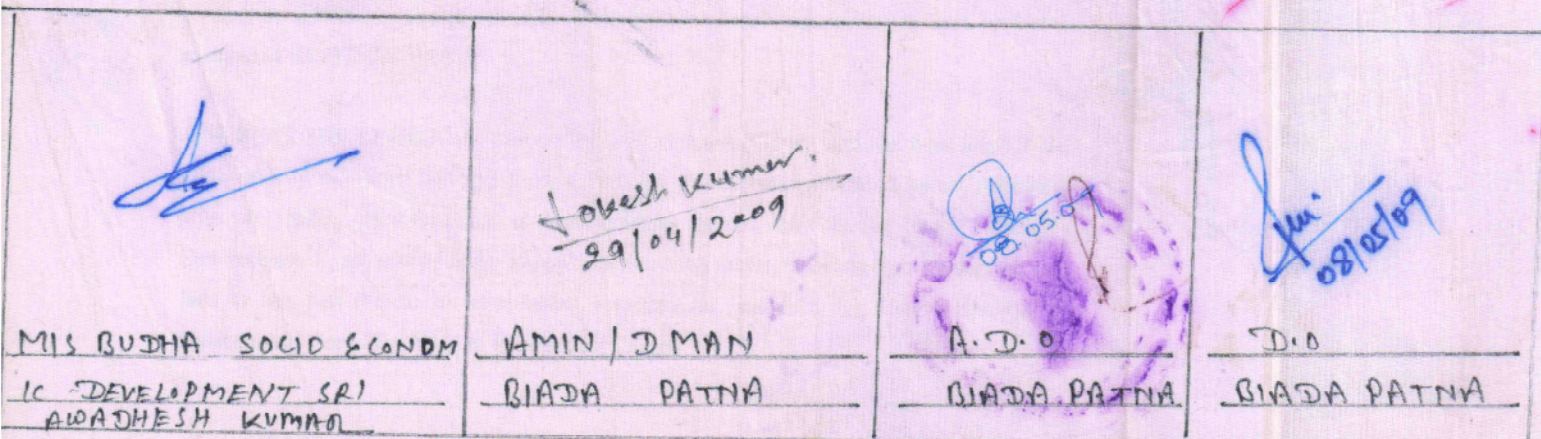 Lokesh Kumar.
29/04/2009
08.05.0
08/05/09
MIS BUDHA SOCIO ECONOM
IC DEVELOPMENT SRI
AWADHESH KUMAR
AMIN / D MAN
BIADA PATNA
A.D.O
BIADA PATNA
D.O
BIADA PATNA